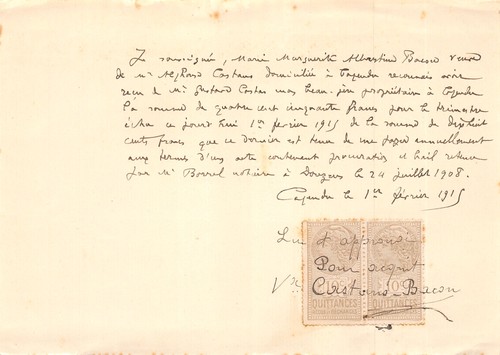 Je soussignée, Marie Marguerite Albertine veuve
de Mr Alphonse Castans domiciliée à reconnais avoir
reçu de Mr Gustave Castans mon beau-père propriétaire à
la somme de quatre cent cinquante francs pour le trimestre
échu ce jourd'hui 1er février 1915 de la somme de dix huit
cents francs que ce dernier est tenu de me payer annuellement
aux termes d'un acte contenant procuration et bail retenu
par Mr Borrel notaire à Dourgne le 24 juillet 1908.
le 1er février 1915
Lu et approuvé
Pour acquit
Vve Castans-Bacon
10c 10c
QUITTANCES QUITTANCES